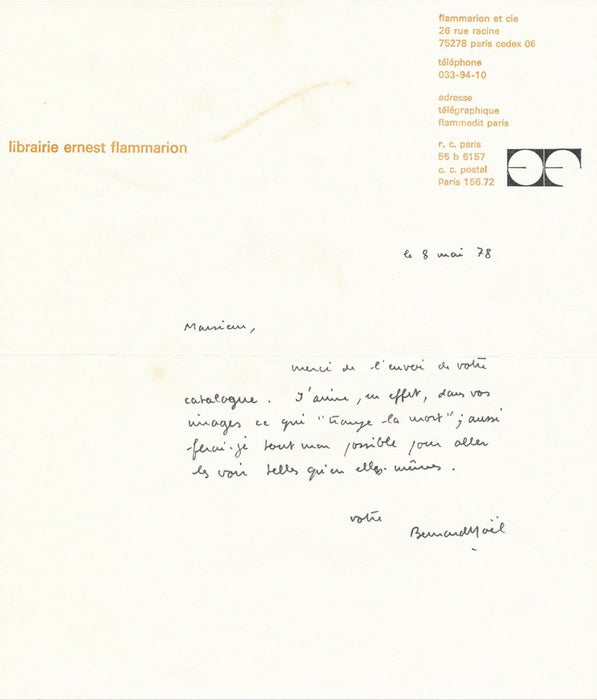 flammarion et cie
26 rue racine
75278 paris cedex 06
téléphone
033-94-10
adresse
télégraphique
flammedit paris
librairie ernest flammarion
r. c. paris
56 b 6157
c. c. postal
Paris 156.72
le 8 mai 78
Monsieur,
merci de l'envoi de votre
catalogue. J'aime, en effet, dans vos
images ce qui "trompe la mort"; aussi
ferai-je tout mon possible pour aller
les voir telles qu'en elles-mêmes.
votre
Bernard Noël